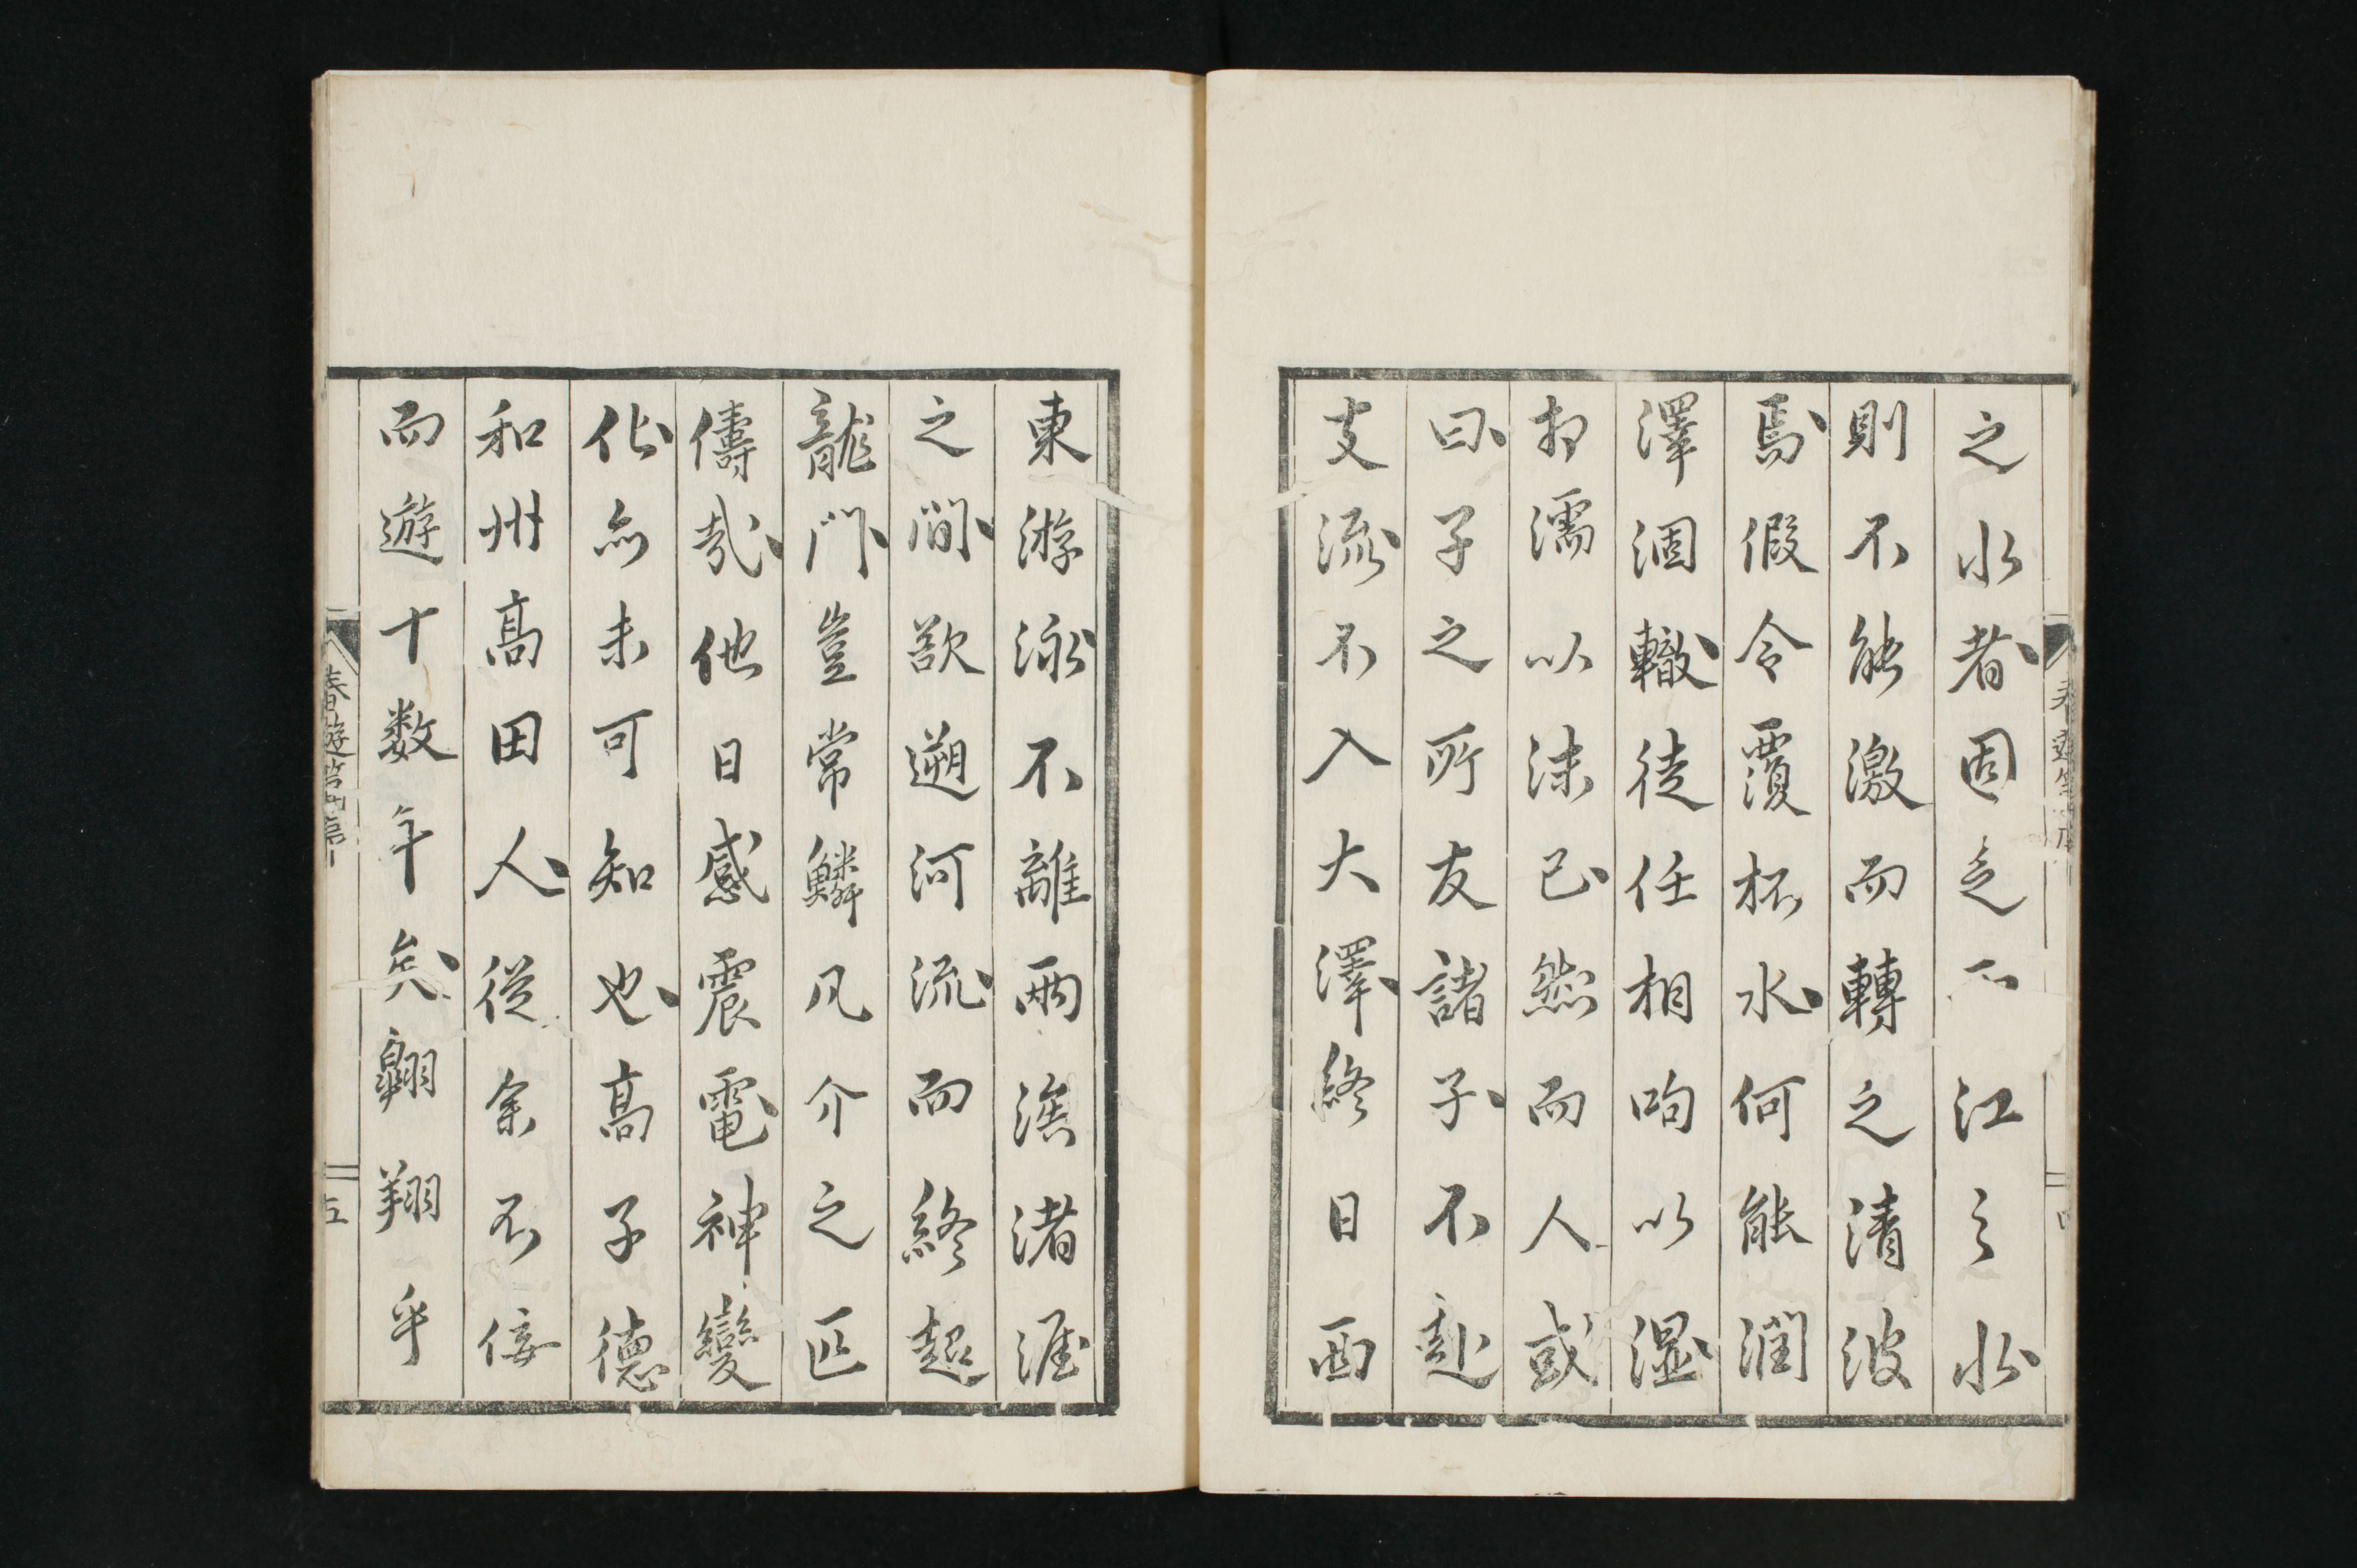 之水者固足不江之水
則不能激而轉之清波
焉假令覆杯水何能潤
澤涸轍徒任相呴以濕
相濡以沫已然而人或
曰子之所友諸子不赴
支流不入大澤終日西
東游泳不離兩涘渚涯
之間欲遡河流而終起
龍門豈常鱗凡介之匹
儔哉他日感震電神變
化亦未可知也高子德
和州高田人從余不佞
而遊十数年矣翱翔乎
五